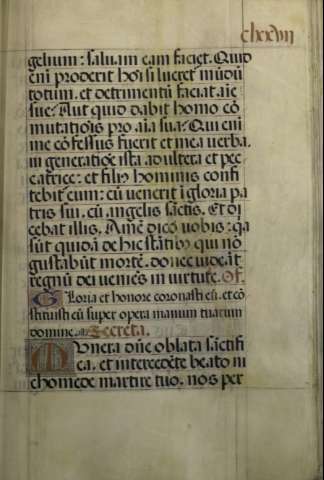 clxxvii
gelium: saluam eam faciet. Quid
eni proderit hoi si lucret mūdū
totum. et detrimentū faciat aīe
sue? Aut quid dabit homo cō
mutatiōis pro aīa sua? Qui eni
me cōfessus fuerit et mea uerba.
in generatiōe ista adultera et pec
catrice: et filiꝰ hominis confi
tebit̄ eum: cū uenerit ī gloria pa
tris sui. cū angelis sāctis. Et di
cebat illis. Amē dico uobis: q̄a
sūt quidā de hic stātibꝰ qui nō
gustabūt mortē. donec uideāt
regnū dei ueniēs in uirtute. Of.
Gloria et honore coronasti eū. et cō
stituisti eū super opera manuum tuarum
domine. Secreta.
Munera dn̄e oblata sāctifi
ca. et intercedēte beato ni
chomede martire tuo. nos per